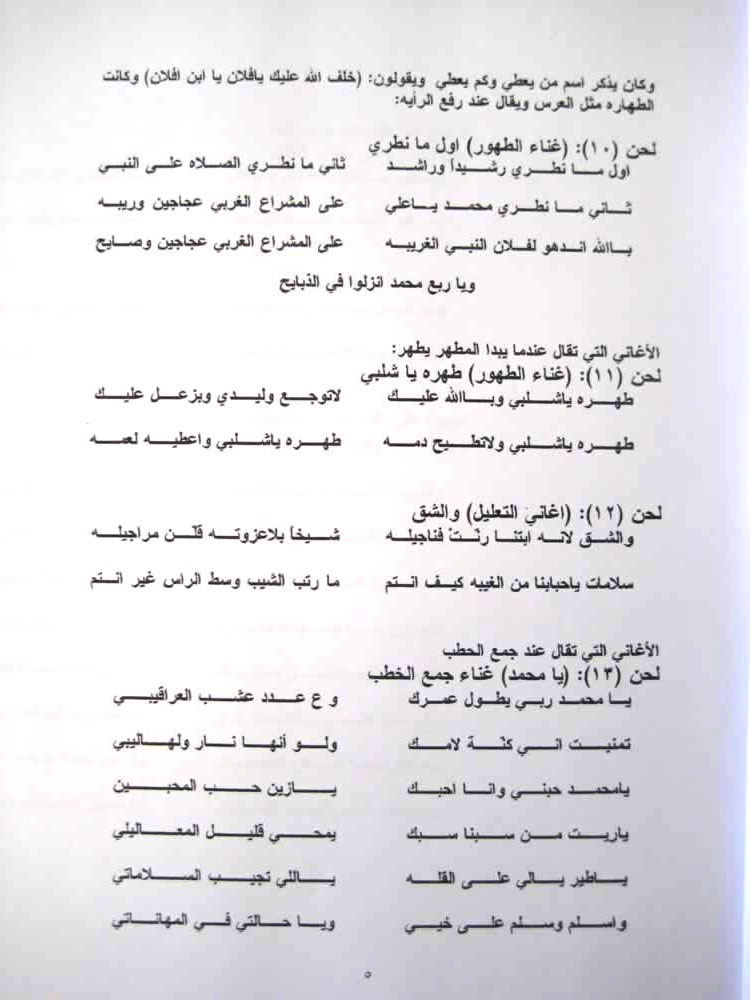 وكان يذكر اسم من يعطي وكم يعطي ويقولون: (خلف الله عليك يافلان يا ابن افلان) وكانت
الطهاره مثل العرس ويقال عند رفع الرايه:
لحن (١٠): (غناء الطهور) اول ما نطري
اول ما نطري رشيداً وراشد ثاني ما نطري الصلاه على النبي
ثاني ما نطري محمد ياعلي على المشراع الغربي عجاجين وريبه
باالله اندهو لفلان النبي الغريبه على المشراع الغربي عجاجين وصايح
ويا ربع محمد انزلوا في الذبايح
الأغاني التي تقال عندما يبدا المطهر يطهر:
لحن (١١): (غناء الطهور) طهره يا شلبي
طهره ياشلبي وباالله عليك لاتوجع وليدي وبزعل عليك
طهره ياشلبي ولاتطيح دمه طهره ياشلبي واعطيه لعمه
لحن (١٢): (اغاني التعليل) والشق
والشق لانه ابتنا رنّت فناجيله شيخاً بلاعزوته قلّن مراجيله
سلامات ياحبابنا من الغيبه كيف انتم ما رتب الشيب وسط الراس غير انتم
الأغاني التي تقال عند جمع الحطب
لحن (١٣): (يا محمد) غناء جمع الخطب
يا محمد ربي يطول عمرك و ع عدد عشب العراقيبي
تمنيت اني كنّة لامك ولو أنها نار ولهاليبي
يامحمد حبني وانا احبك يازين حب المحبين
ياريت من سبنا سبك يمحي قليل المعاليلي
ياطير يالي على القله ياللي تجيب السلاماتي
واسلم وسلم على خيي ويا حالتي في المهاناتي
٥